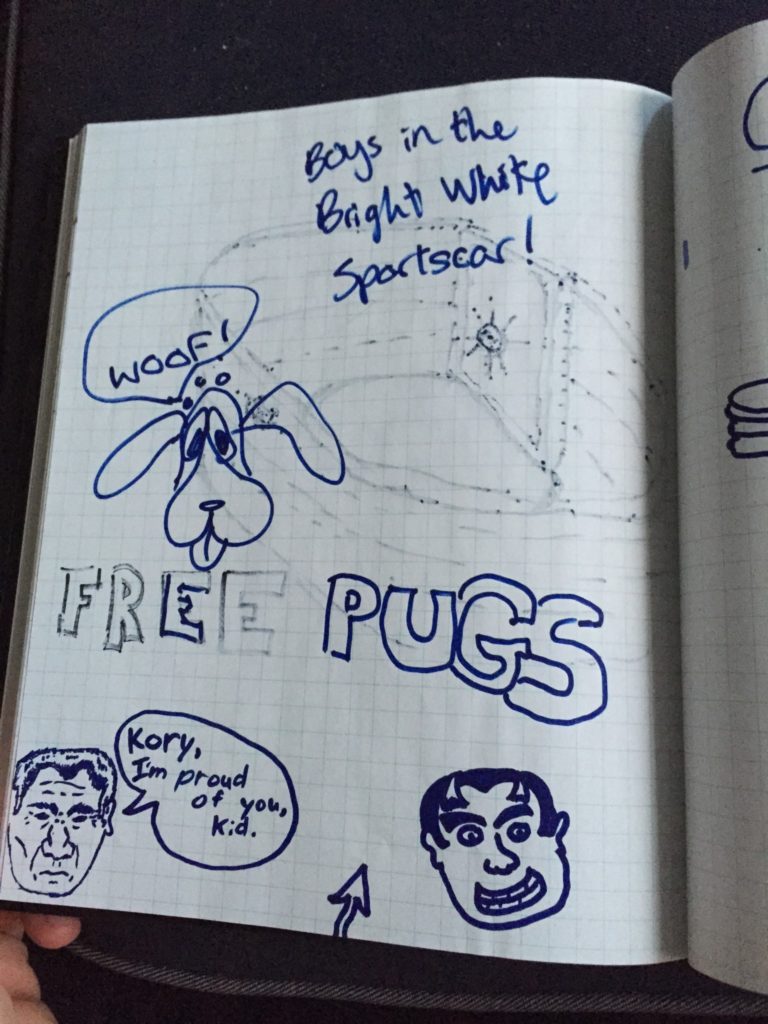 Boys in the
Bright White
Sportscar!
WOOF!
FREE PUGS
Kory,
I'm proud
of you,
kid.